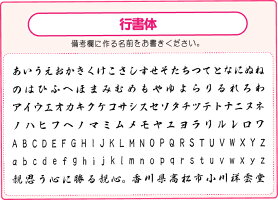 行書体
備考欄に作る名前をお書きください。
あいうえおかきくけこさしすせそたちつてとなにぬね
のはひふへほまみむめもやゆよらりるれろわ
アイウエオカキクケコサシスセソタチツテトナニヌネ
ノハヒフヘホマミムメモヤユヨラリルレロワ
ABCDEFGHIJKLMNOPQRSTUVWXYZ
abcdefghijklmnopqrstuvwxyz
親思う心に勝る親心。香川県高松市小川祥雲堂